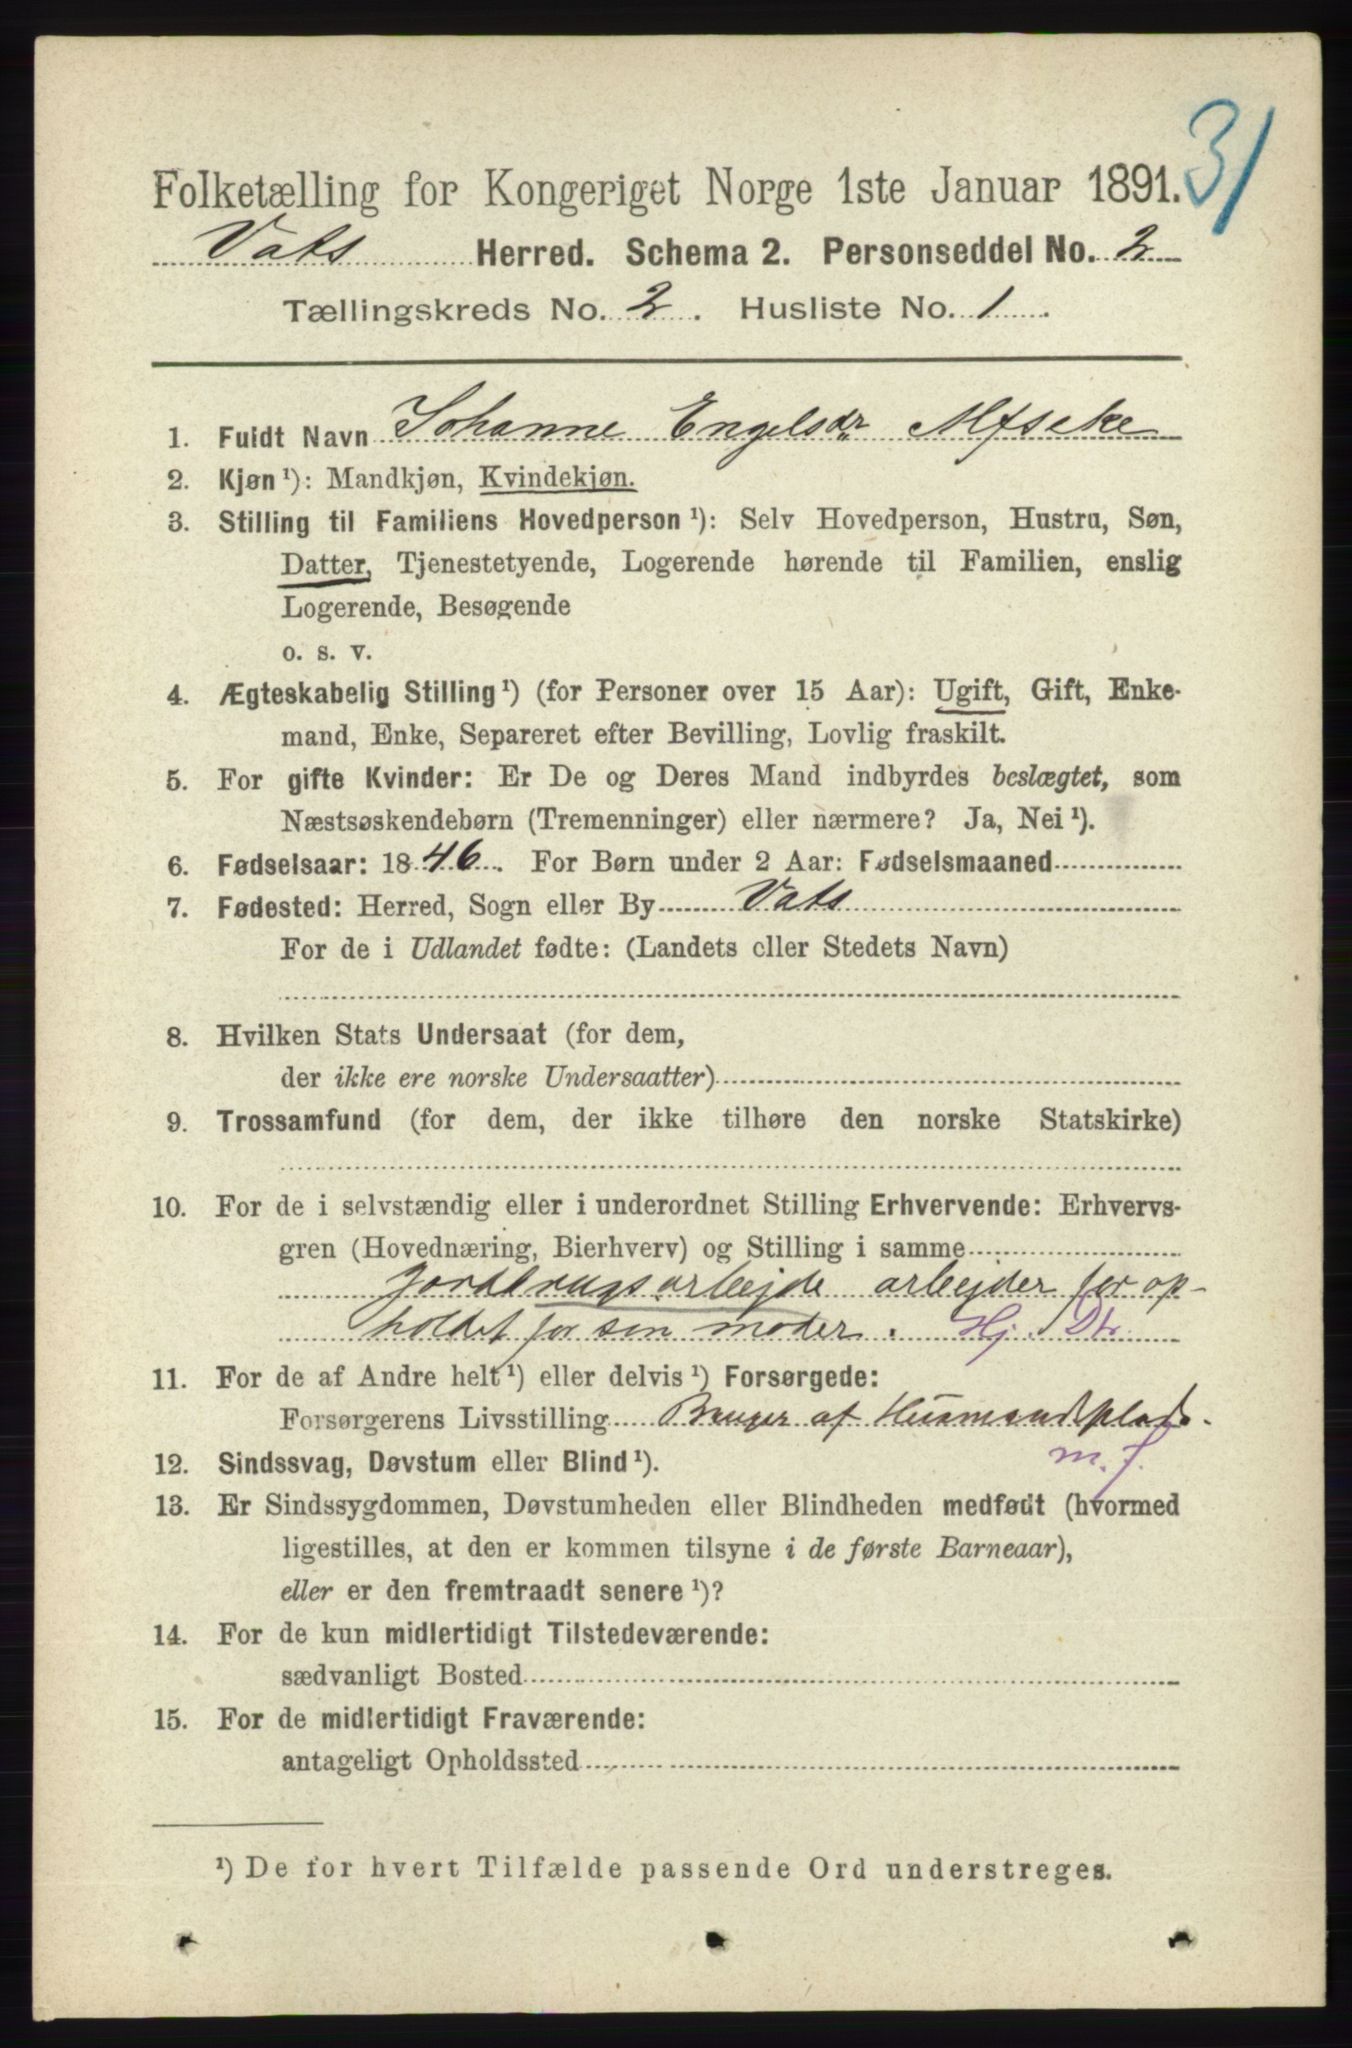 31
Folketælling for Kongeriget Norge 1ste Januar 1891.
Vats Herred. Schema 2. Personseddel No. 2
Tællingskreds No. 2. Husliste No. 1.
1. Fuldt Navn Johanne Engelsdr
2. Kjøn ¹): Mandkjøn, Kvindekjøn.
3. Stilling til Familiens Hovedperson ¹): Selv Hovedperson, Hustru, Søn,
Datter, Tjenestetyende, Logerende hørende til Familien, enslig
Logerende, Besøgende
o. s. v.
4. Ægteskabelig Stilling ¹) (for Personer over 15 Aar): Ugift, Gift, Enke-
mand, Enke, Separeret efter Bevilling, Lovlig fraskilt.
5. For gifte Kvinder: Er De og Deres Mand indbyrdes beslægtet, som
Næstsøskendebørn (Tremenninger) eller nærmere? Ja, Nei ¹).
6. Fødselsaar: 1846. For Børn under 2 Aar: Fødselsmaaned
7. Fødested: Herred, Sogn eller By Vats
For de i Udlandet fødte: (Landets eller Stedets Navn)
8. Hvilken Stats Undersaat (for dem,
der ikke ere norske Undersaatter)
9. Trossamfund (for dem, der ikke tilhøre den norske Statskirke)
10. For de i selvstændig eller i underordnet Stilling Erhvervende: Erhvervs-
gren (Hovednæring, Bierhverv) og Stilling i samme
Jordbrugsarbejde arbejder for op-
holdet for sin moder. Hj. Dtr
11. For de af Andre helt ¹) eller delvis ¹) Forsørgede:
Forsørgerens Livsstilling Bruger af Husmandsplads.
m. f.
12. Sindssvag, Døvstum eller Blind ¹).
13. Er Sindssygdommen, Døvstumheden eller Blindheden medfødt (hvormed
ligestilles, at den er kommen tilsyne i de første Barneaar),
eller er den fremtraadt senere ¹)?
14. For de kun midlertidigt Tilstedeværende:
sædvanligt Bosted
15. For de midlertidigt Fraværende:
antageligt Opholdssted
¹) De for hvert Tilfælde passende Ord understreges.